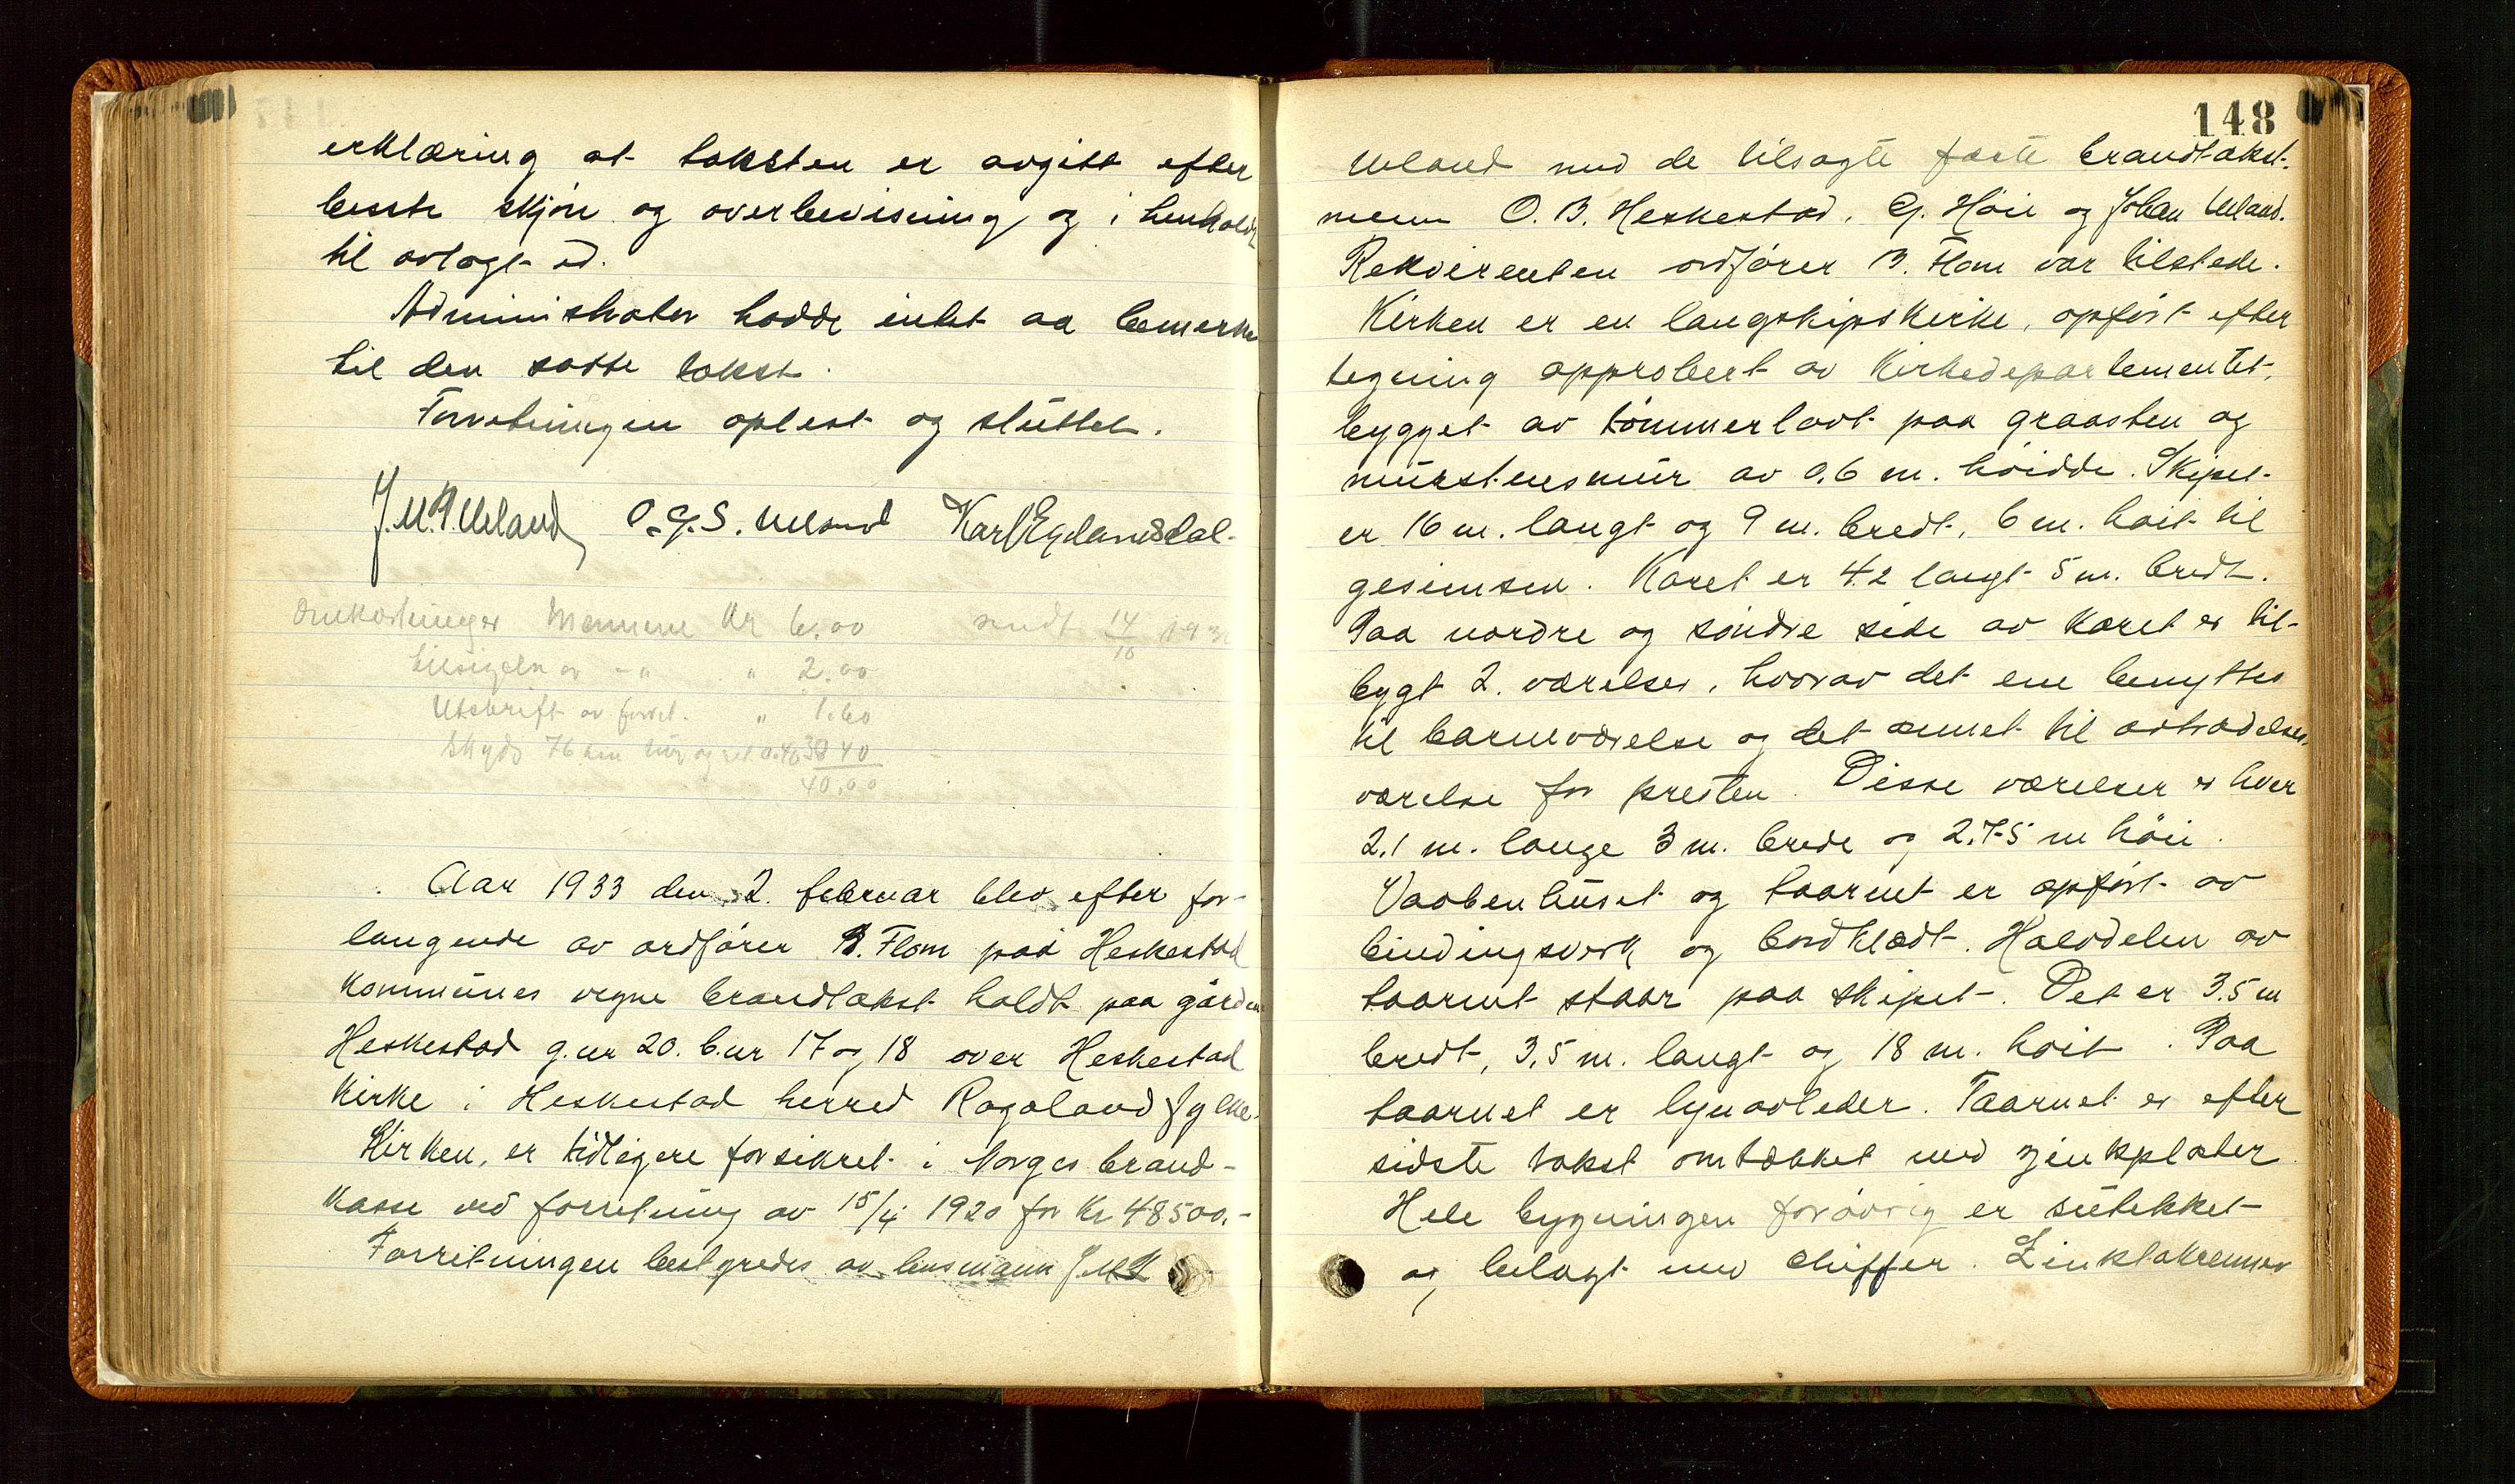 erklæring at taksten er avgitt efter
beste skjön og overbevisning og i henhold
til avlagt ed.
Administrator hadde intet aa bemerke
til den satte takst.
Forretningen oplest og sluttet.
J.M.A. Ueland O.G.S. Ueland Karl Eglandsdal
Omkostninger Mennene Kr 6.00 sendt 14/10 193
tilsigelse av -"- " 2.00
Utskrift av forret. " 1.60
Skyds 76 km tur og ret 0.40 30 40
40,00
Aar 1933 den 2. februar blev efter for-
langende av ordförer B. Flom paa Heskestad
Kommunes vegne brandtakst holdt paa gården
Heskestad g.nr 20. b.nr 17 og 18 over Heskestad
Kirke i Heskestad herred Rogaland fylke.
Kirken, er tidligere forsikret i Norges brand-
kasse ved forretning av 15/4 1920 for Kr 48500.-
Forretningen bestyredes av lensmann J.M.A.
148
Ueland med de tilsagte faste brandtakst-
menn O. B. Heskestad. G. Höie og Johan Ueland.
Rekvirenten ordförer B. Flom var tilstede.
Kirken er en langskipskirke, opfört efter
tegning approbert av Kirkedepartementet,
bygget av tömmerlavt paa graasten og
murstensmur av 0,6 m. höidde. Skipet
er 16 m. langt og 9 m. bredt, 6 m. höit til
gesimsen. Koret er 4.2 langt 5 m. bredt.
Paa nordre og söndre side av koret er til-
bygt 2. værelser, hvorav det ene benyttes
til barneværelse og det annet til avtrædelses-
værelse for presten. Disse værelser er hver
2,1 m. lange 3 m. brede og 2,75 m höie.
Vaabenhuset og taarnet er opfört av
bindingsverk og bordklædt. Halvdelen av
taarnet staar paa skipet. Det er 3.5 m
bredt, 3,5 m. langt og 18 m. höit. Paa
taarnet er lynavleder. Taarnet er efter
sidste takst omtækket med zinkplater.
Hele bygningen forövrig er sutekket
og belagt med skiffer. Zinktakrenner